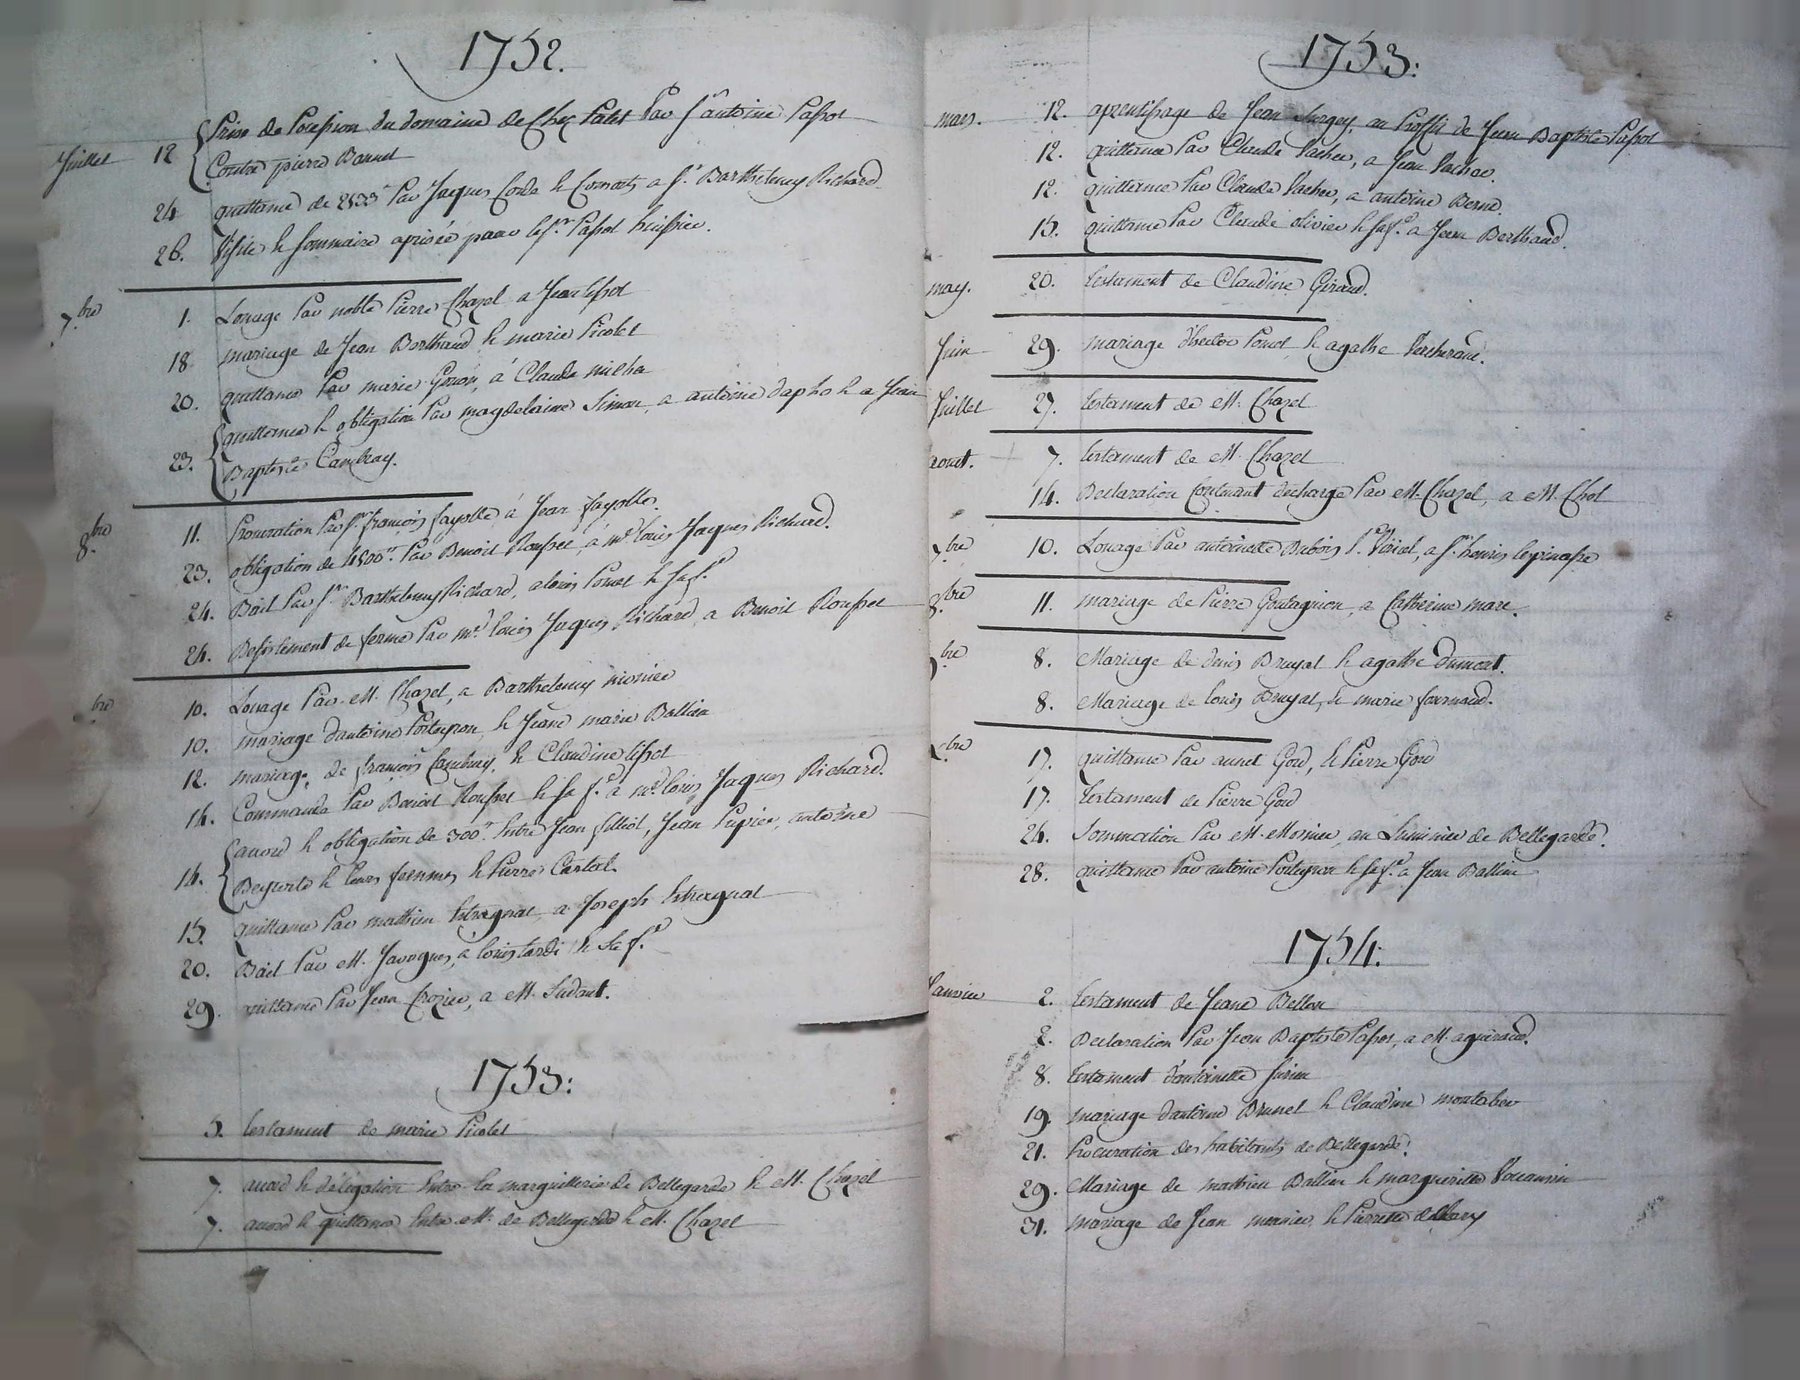 1752.
Prise de Possession du domaine de Chez Patet Par Sr antoine Passot
Juillet 12 Contre pierre Barret
24 quittance de 2533# Par Jaques Conde & Consorts a Sr. Barthelemy Richard
26. Visite & Sommaire aprisée par le Sr. Passot huissier.
7.bre 1. Louage Par noble Pierre Chazel a Jean
18 mariage de Jean Berthaud & marie Picolet
20. quittance Par marie Goron, à Claude
quittance & obligation Par magdelaine Simon, a antoine & a Jean
23. Baptiste Cambray.
8.bre 11. Procuration Par Sr. françois fayolle, à Jean fayolle.
23. obligation de 4500# Par Benoit Rousset, à Mr. louis Jaques Richard.
24. Bail Par Sr. Barthelemy Richard, a louis Pomet & sa f.e
24. Desistement de ferme Par Mr. louis Jaques Richard, a Benoit Rousset
bre 10. Louage Par M. Chazel, a Barthelemy monier
10. mariage dantoine Ponteyron, & Jeane marie Ballien
12. mariage de françois Cambray, & Claudine
14. Commande Par Benoit Rousset & sa f.e a Mr. louis Jaques Richard.
accord & obligation de 300# Entre Jean filliol, Jean Pupier, antoine
14. & leurs femmes & Pierre Cartal.
15. quittance Par mathieu a Joseph
20. Bail Par M. Javogues, a louis tardi & Sa f.e
29. quittance Par Jean Crozier, a M.
1753:
5. testament de marie Picolet
7. accord & délégation Entre la marguillerie de Bellegarde & M. Chazel
7. accord & quittance Entre M. de Bellegarde & M. Chazel
1753:
mars. 12. aprentissage de Jean au Proffit de Jean Baptiste Passot
12. quittance Par Claude Vacher, a Jean Vacher.
12. quittance Par Claude Vacher, a antoine Berne.
15. quittance Par Claude olivier & sa f.e a Jean Berthaud.
may. 20. testament de Claudine Giraud.
Juin 29. mariage d'hector Pomet & agathe
Juillet 27. testament de M. Chazel
aout. 7. testament de M. Chazel
14. Declaration Contenant décharge Par M. Chazel, a M. Chol
7.bre 10. Louage Par antoinette Dubois Ve. Viricel, a Sr. henris lespinasse
8.bre 11. mariage de Pierre Goutagnion, a Catherine mare.
9.bre 8. Mariage de denis Bruyat & agathe dumont.
8. Mariage de louis Bruyat, & marie fournaud.
bre 17. quittance Par aunet Gord, & Pierre Gord
17. testament de Pierre Gord
24. Sommation Par M. Mosnier, au Luminier de Bellegarde.
28. quittance Par antoine Ponteyron & sa f.e a Jean Ballien
1754:
Janvier 2. testament de Jeane Bellon
2. Declaration Par Jean Baptiste Passot, a M. aguiraud.
8. testament d'antoinette
19. mariage dantoine Brunel & Claudine
21. Procuration des habitants de Bellegarde.
29. Mariage de mathieu Ballien & margueritte
31. mariage de Jean mosnier, & Pierrette